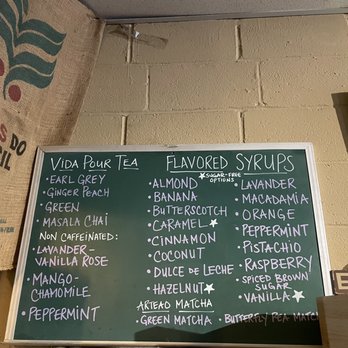 S DO
IL
VIDA POUR TEA
• EARL GREY
• GINGER PEACH
• GREEN
• MASALA CHAI
NON CAFFEINATED:
• LAVENDER-
VANILLA ROSE
• MANGO-
CHAMOMILE
• PEPPERMINT
FLAVORED SYRUPS
★SUGAR-FREE
OPTIONS
• ALMOND
• BANANA
• BUTTERSCOTCH
• CARAMEL ★
• CINNAMON
• COCONUT
• DULCE DE LECHE
• HAZELNUT ★
• LAVENDER
• MACADAMIA
• ORANGE
• PEPPERMINT
• PISTACHIO
• RASPBERRY
• SPICED BROWN
SUGAR
• VANILLA ★
ARTEAO MATCHA
• GREEN MATCHA
• BUTTERFLY PEA MATCH
E